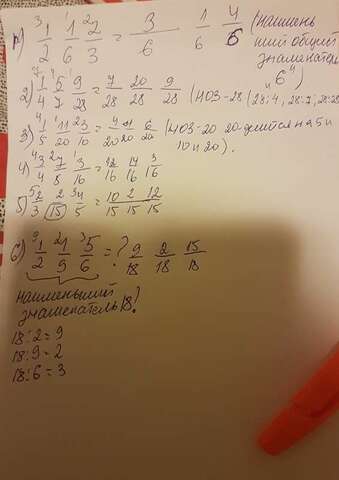 1) ³1/2 ¹1/6 ²2/3 = 3/6 1/6 4/6 (наимень
ший общий
знаменатель
"6")
2) ⁷1/4 ⁴5/7 ¹9/28 = 7/28 20/28 9/28 (НОЗ-28 (28:4, 28:7, 28:28
3) ⁴1/5 ¹11/20 ²3/10 = 4/20 11/20 6/20 (НОЗ-20 20 делится на 5 и
10 и 20).
4) ⁴3/4 ²7/8 ¹3/16 = 12/16 14/16 3/16
5) ⁵2/3 2/15 ³4/5 = 10/15 2/15 12/15
6) ⁹1/2 ²1/9 ³5/6 = ? 9/18 2/18 15/18
наименьший
знаменатель 18?
18:2=9
18:9=2
18:6=3